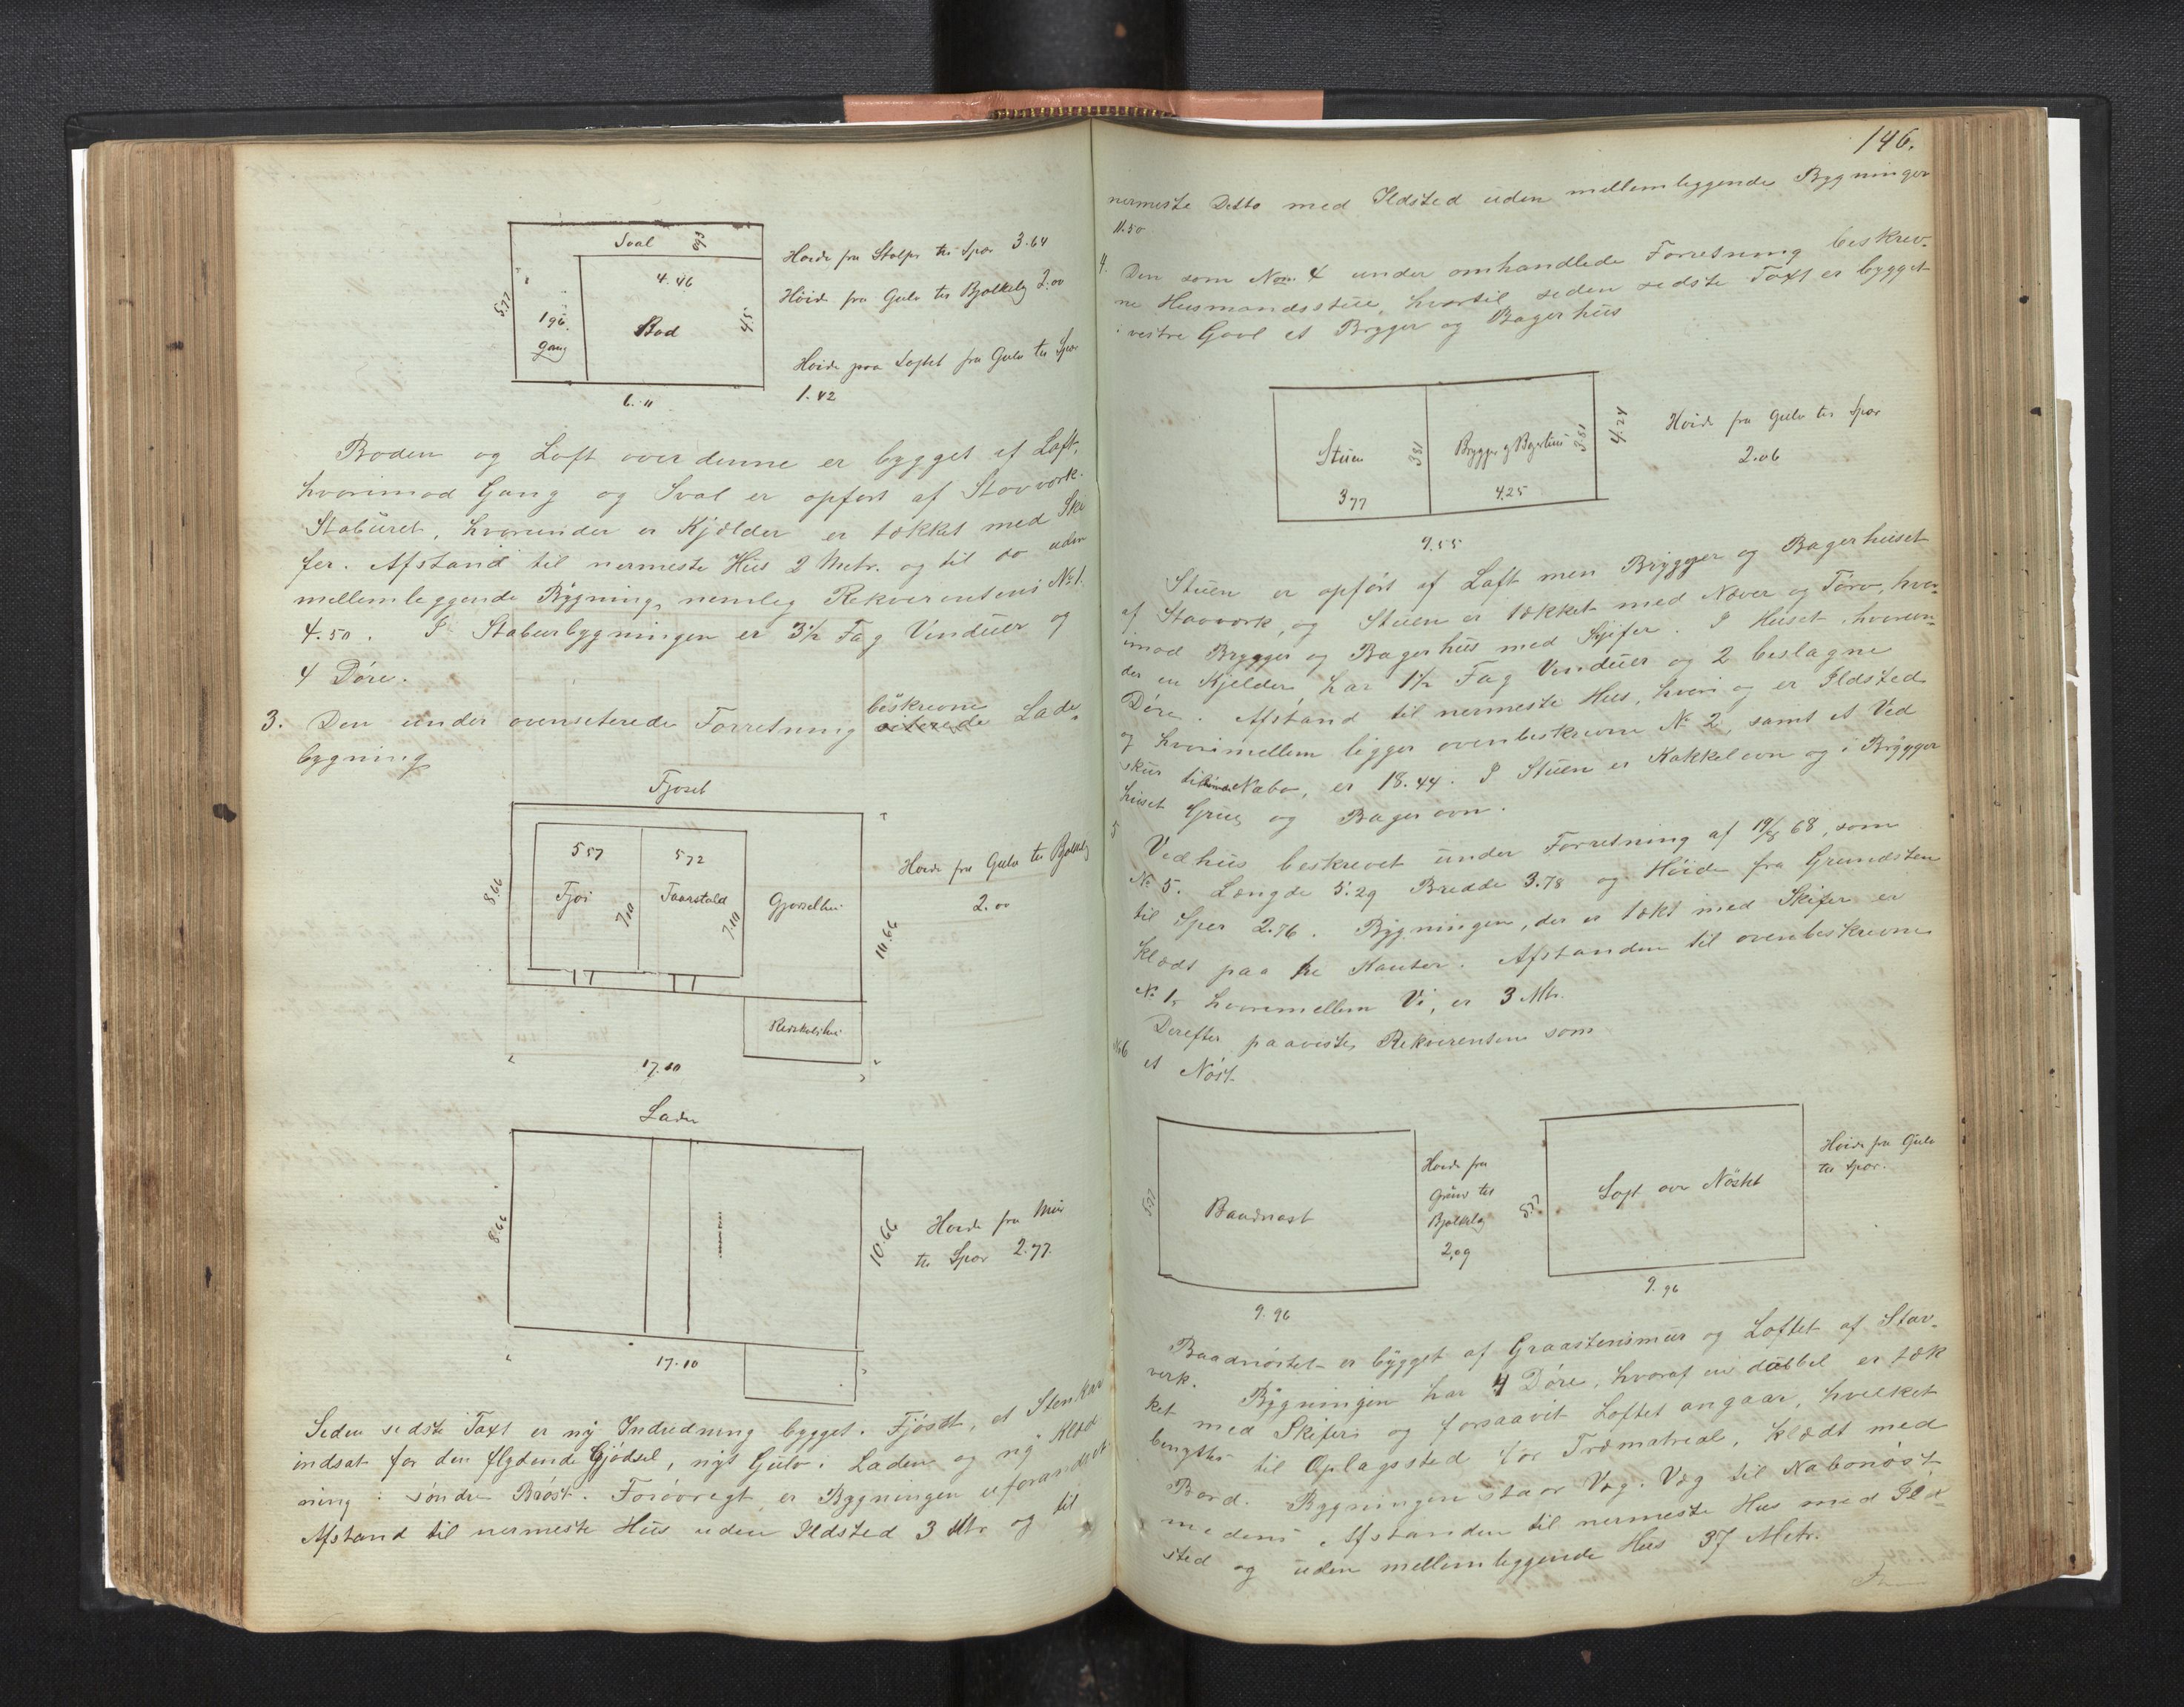 Sval 093
4.46
5.77
196
gang
Bod
4.5
6.11
Høide fra Stolper til Sper 3.64
Høide fra Gulv til Bjælkelag 2.00
Høide paa Loftet fra Gulv til Sper
1.42
Boden og Loft over denne er bygget af Laft,
hvorimod Gang og Sval er opført af Stavværk.
Staburet, hvorunder er Kjælder er tækket med Ski
fer. Afstand til nærmeste Hus 2 Metr. og til do uden
mellemliggende Bygning, nemlig Rekvirentens No 1.
4.50. I Staburbygningen er 3½ Fag Vinduer og
4 Døre.
3. Den under ovenciterede Forretning beskrevne Lade-
bygning
Fjøset
557
572
8.66
Fjøs
7.10
Faarstald
7.10
Gjødselhus
10.66
Redskabshus
17.10
Høide fra Gulv til Bjælkelag
2.00
Laden
8.66
10.66
17.10
Høide fra Mur
til Sper 2.77.
Siden sidste Taxt er ny Indredning bygget i Fjøset, et Stenkar
indsat for den flydende Gjødsel, nyt Gulv i Laden og ny Klæd
ning i søndre Brøst. Forøvrigt er Bygningen uforandret.
Afstand til nærmeste Hus uden Ildsted 3 Mtr og til
146.
nærmeste Ditto med Ildsted uden mellemliggende Bygninger
11.50
4. Den som No 4 under omhandlede Forretning beskrev-
ne Husmandsstue, hvortil siden sidste Taxt er bygget
i vestre Gavl et Brygger og Bagerhus
Stuen
377
381
Brygger og Bagerhus
4.25
381
4.24
9.55
Høide fra Gulv til Sper
2.06
Stuen er opført af Laft men Brygger og Bagerhuset
af Stavværk, og Stuen er tækket med Næver og Törv, hvor-
imod Brygger og Bagerhus med Skjifer. I Huset, hvorun-
der en Kjelder, har 1½ Fag Vinduer og 2 beslagne
Døre. Afstand til nærmeste Hus, hvori og er Ildsted
og hvorimellem ligger ovenbeskrevne No 2, samt et Ved
skur tilhørende Nabo, er 18.44. I Stuen er Kakkelovn og i Brygger
huset Grue og Bagerovn.
5 Vedhus beskrevet under Forretning af 19/8 68, som
No 5. Længde 5.29 Bredde 3.78 og Høide fra Grundsten
til Sper 2.76. Bygningen, der er tækt med Skifer er
Klædt paa tre Kanter. Afstanden til ovenbeskrevne
No 1, hvorimellem Vei, er 3 Mtr.
No 6 Derefter paaviste Rekvirenten som
et Nøst
5.77
Baadnøst
9.96
Høide fra
Grund til
Bjælkelag
2.09
5.77
Loft over Nöstet
9.96
Høide fra Gulv
til Sper.
Baadnøstet er bygget af Graastensmur og Loftet af Stav-
verk. Bygningen har 4 Døre, hvoraf en dubbel er tæk
ket med Skifer og forsaavit Loftet angaar, hvilket
benyttes til Oplagssted for Træmatreal, klædt med
Bord. Bygningen staar Væg i Væg til Nabonøst
medens Afstanden til nærmeste Hus med Ild-
sted og uden mellemliggende Hus 37 Metr.